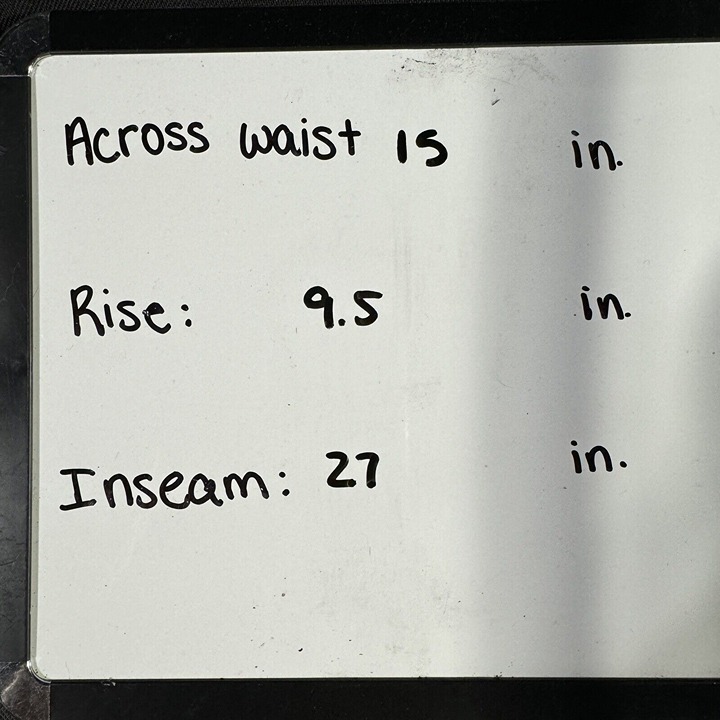 Across waist 15 in.
Rise: 9.5 in.
Inseam: 27 in.